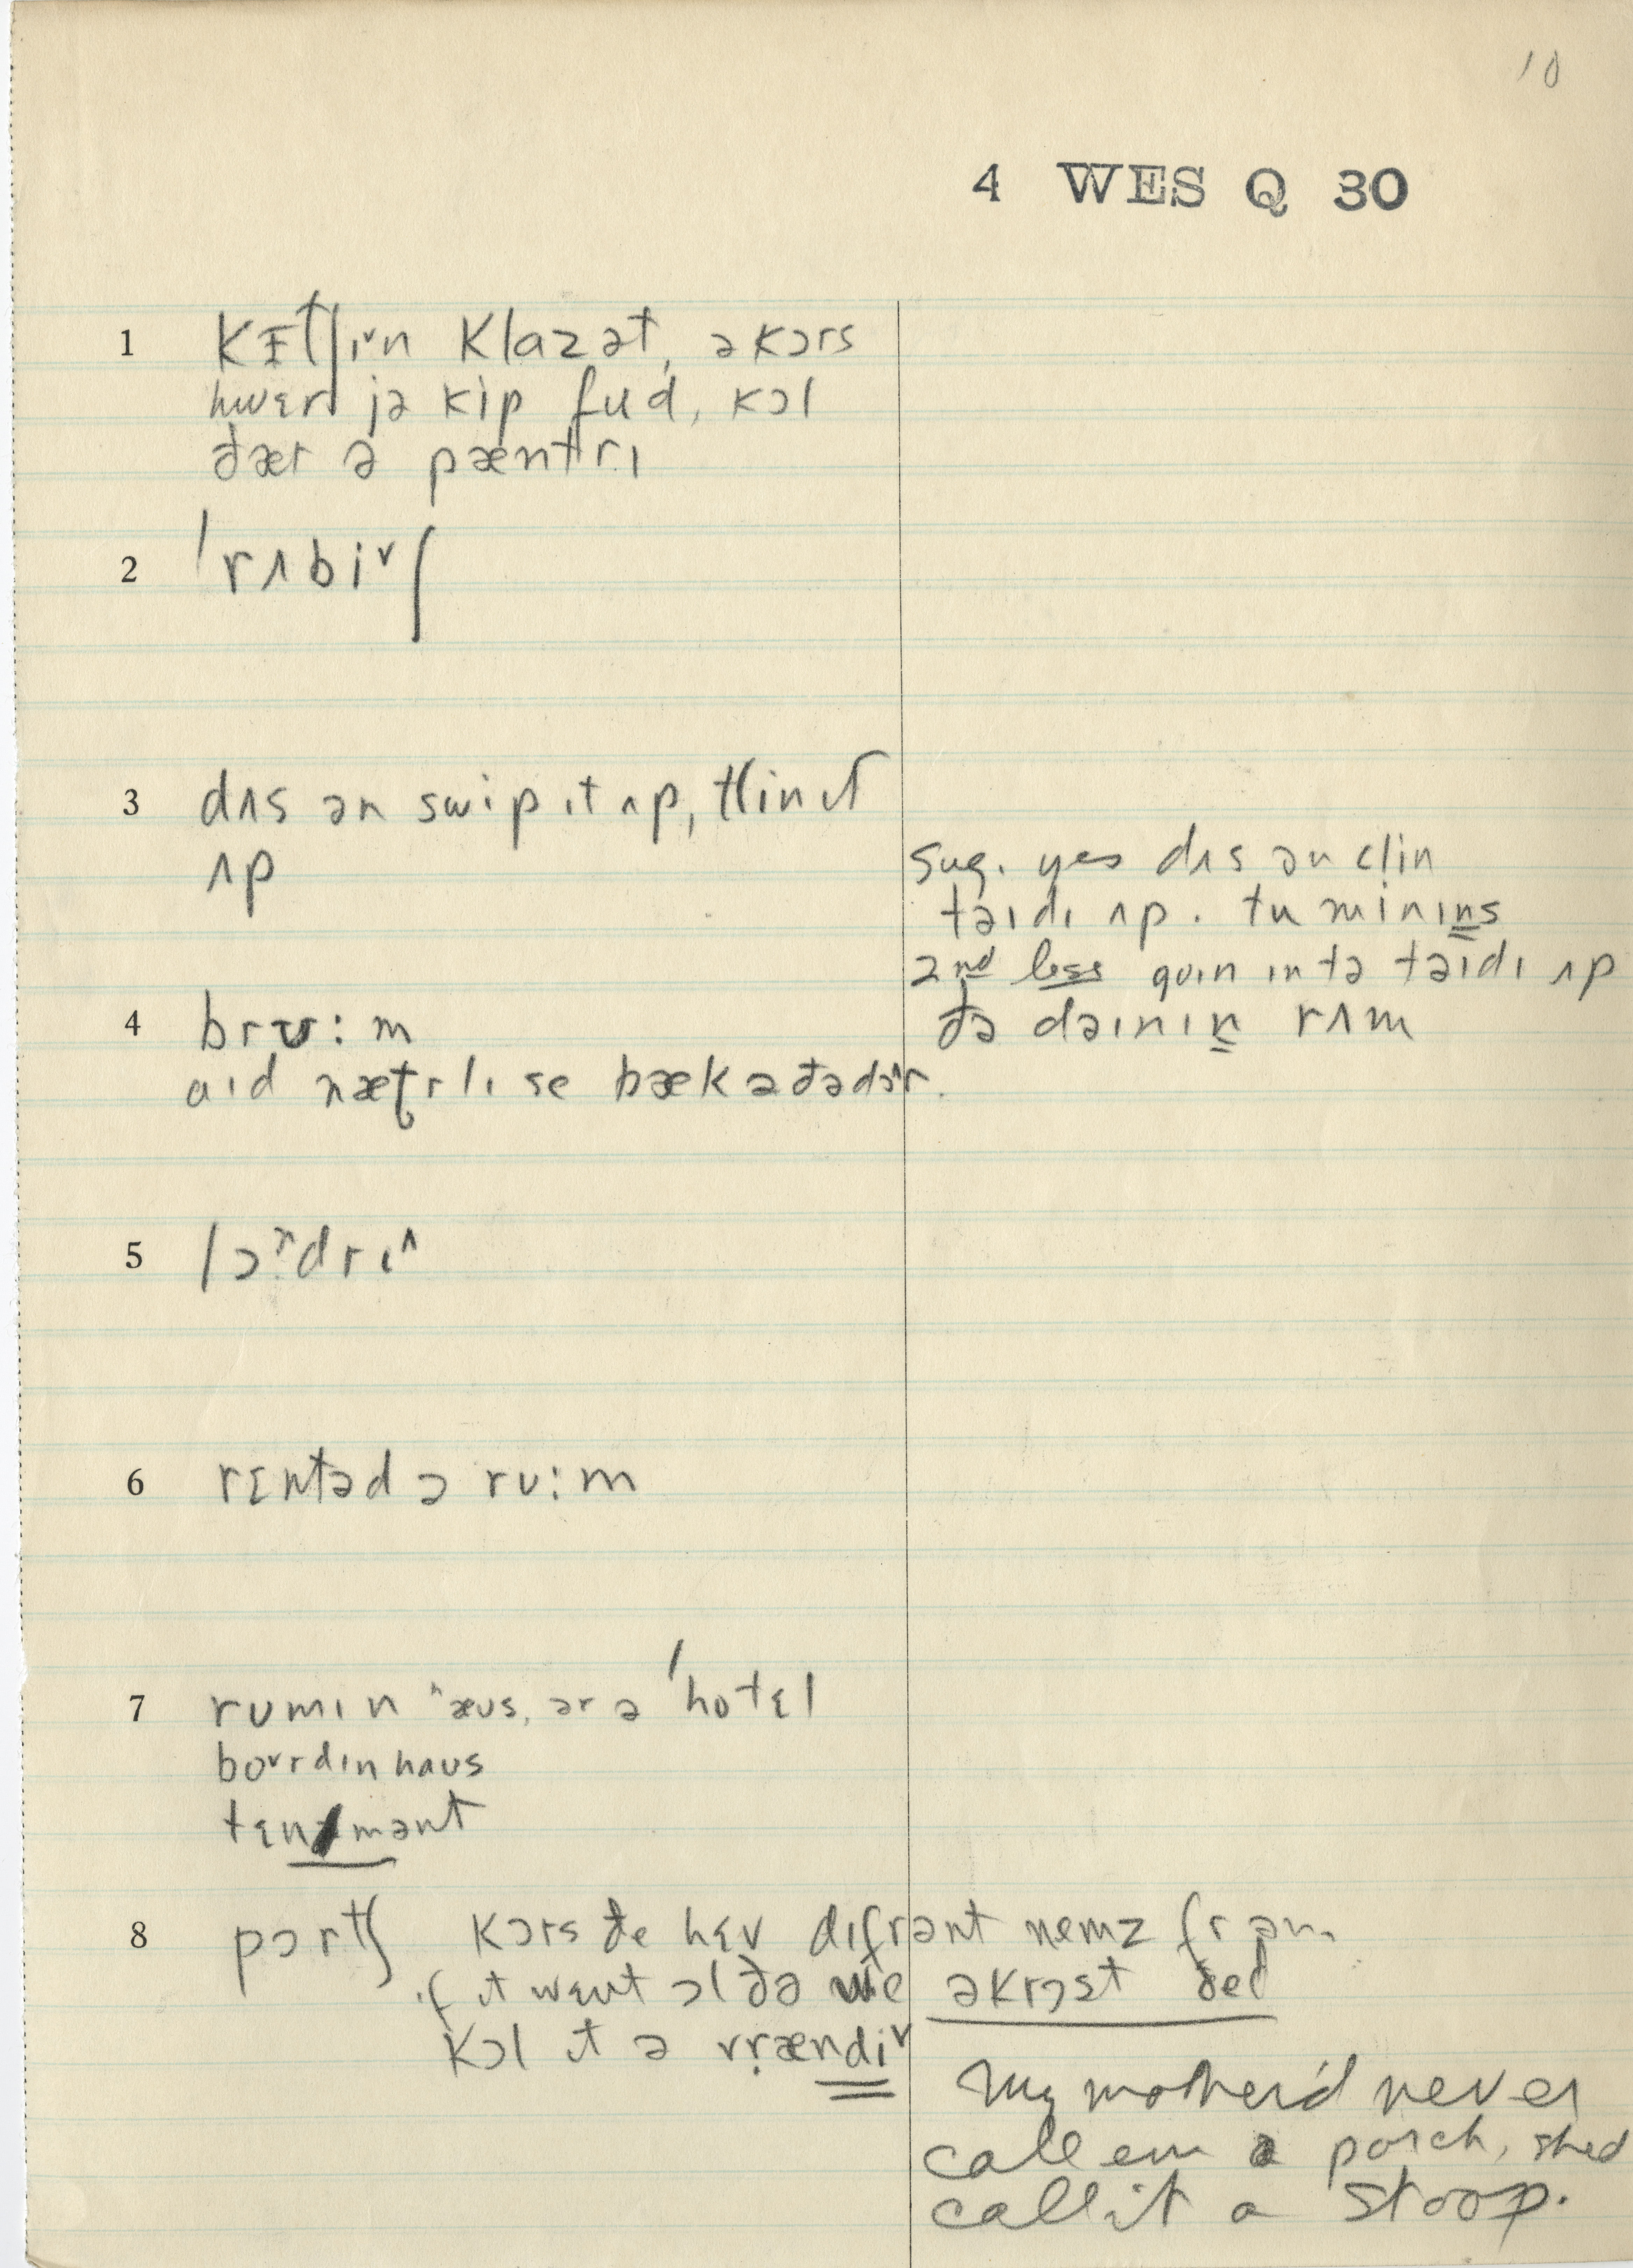 10
4 WES Q 30
1 kɪtʃɪ˅n klazət, əkɔrs
hwɛr jə kip fud, kɔl
ðær ə pæntrɪ
2 ˈrʌbi˅ʃ
3 dʌs ən swip ɪt ʌp, klin ɪt
ʌp
sug. yes dʌs ən clin
təɪdɪ ʌp. tu minɪns
2nd less goɪn ɪntə təɪdɪ ʌp
ðə dəɪnɪn rʌm
4 brʊ:m
aɪd nætrlɪ se bæk ə ðə dɔ^r.
5 lɔndrɪ^
6 rɛntəd ə rʊ:m
7 rʊmɪn ʰæʊs, ər ə ˈhotɛl
bo˅rdɪn haʊs
tɛnəmənt
8 pɔrtʃ kɔrs ðe hɛv dɪfrənt nemz fr əm.
ɪf ɪt wɛnt ɔl ðə we əkrɔst ðed
kɔl ɪt ə vrændi˅
My mother'd never
call em a porch, shed
call it a stoop.